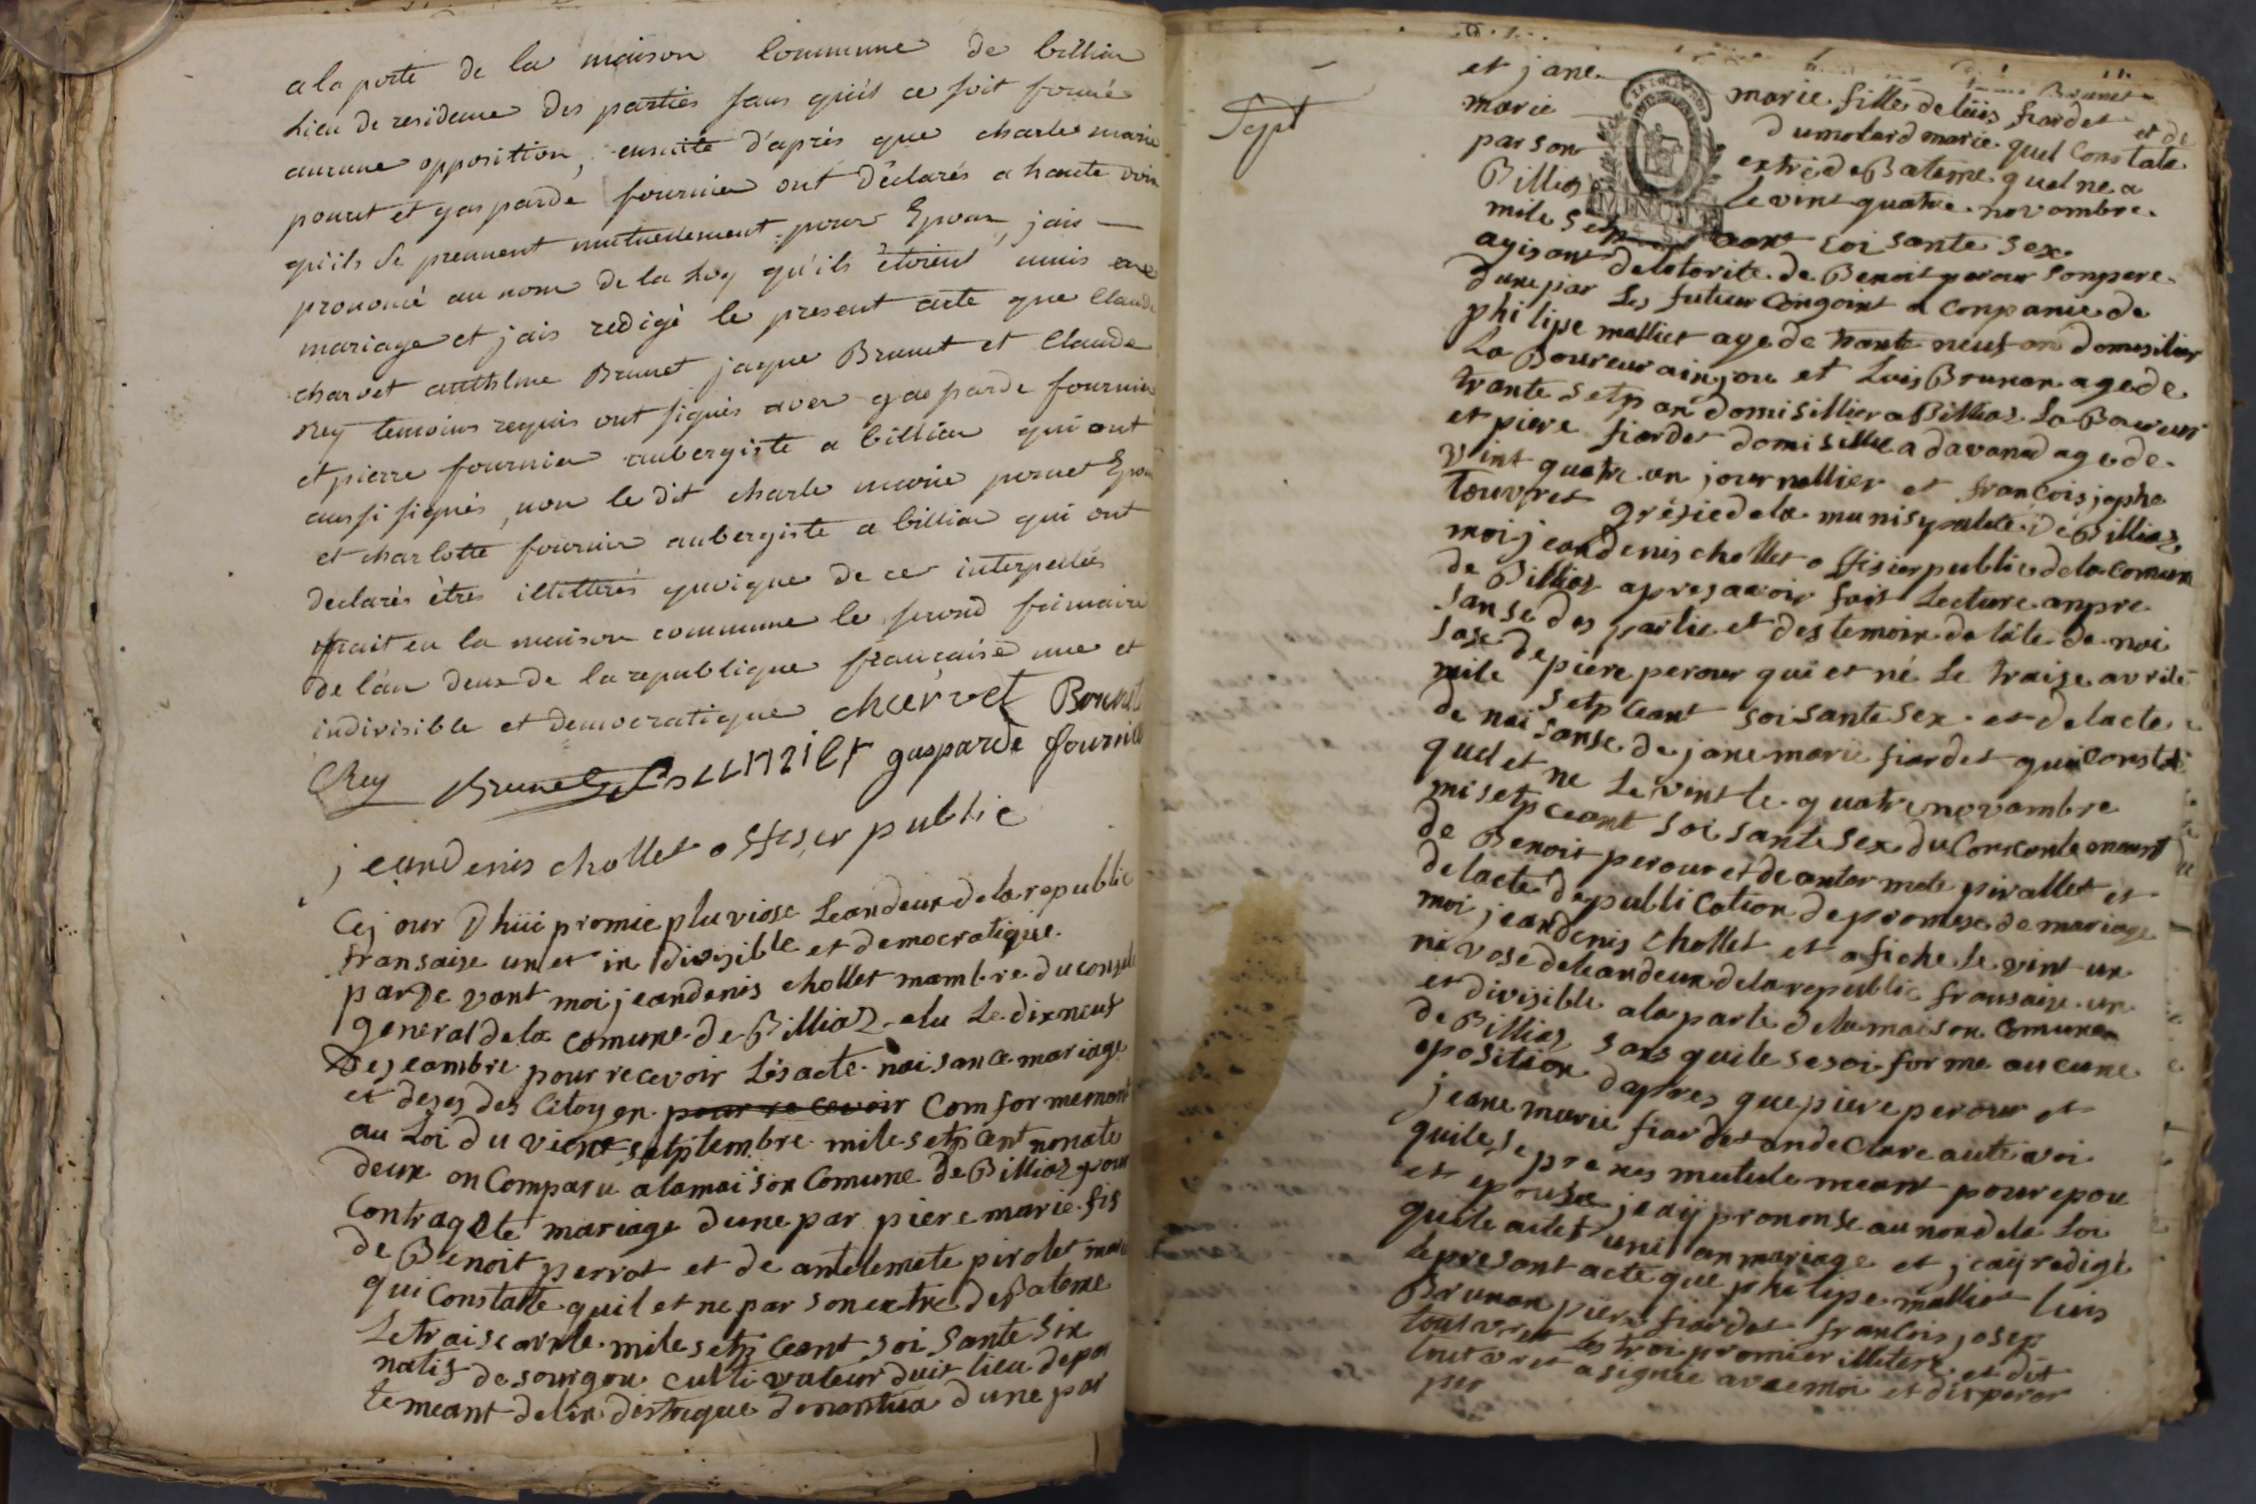 a la porte de la maison Commune de billia
Lieu de residence des parties sans qu'il ce soit formé
aucune opposition, ensuite d'après que charle marie
pouret et gasparde fournier ont déclarés a haute voix
qu'ils se prennent mutuellement pour Epoux, jais
prononcé au nom de la Loy qu'ils étoient unis en
mariage et jais redigé le present acte que Claude
charvet Brunet jaque Brunet et Claude
Rey temoins requis ont signés avec gasparde fournier
et pierre fournier aubergiste a billia qui ont
aussi signés, non le dit charle marie pernet Epou
et charlotte fournier aubergiste a billia qui ont
declarés être illittérés quoique de ce interpellés
fait en la maison commune le second frimaire
de l'an deux de la republique française une et
indivisible et democratique chcervet Brunet
CRey Brunet gasparde fournier
jeandenis chollet offiser public
Cej our Dhüi promie pluviose Leandeux dela republic
fransaise un et in divisible et democratiqüe.
parde vant moi jeandenis chollet mambre du conseile
general dela comune de Billiaz elu Le dix neuf
Deseambre pour recevoir Lesacte naisance mariage
et deses des Citoyen pour recevoir Comformement
au Loi du vient setptembre mile setp Cent nonate
deux on Comparu alamaison Comune de Billiaz pour
Contragete mariage dune par piere marie fis
de Benoit perrot et de antelemete pirolet marie
qui Constatte quil et ne par son extrie de Bateme
Le traise avrile mile setp Ceant soi sante six
natif de sourgou cultivateur duit lieu depa
temeant delin distrique denantua dune par
Sept
et jane marie fille de lüis fiardet et de
marie dumolard marie quel Constate
par son extrié de Bateme quel ne a
Billiaz le vint quatre novambre
mile setp ceant soi sante sex
agisant delotorite de Benoit perour son pere
dune par Les futeur Congoint a Conpanie de
philipe malliet age de trante neuf an domisilier
La Boureur ainjou et Luis Brunan age de
trante setp an domisillier a Billiaz La Boureur
et piere fiardet domisillie a davanad age de
vint quatre an journallier et françois jophe
touvret gréfie dela munisypalete de Billiaz
moi jeandenis chollet offisier public dela Comune
de Billiaz apres avoir fait Lecture anpre
sanse des partie et des temoin de late de nai
sase de piere perour qui et né Le traise avrile
mile setp Ceant soi sante sex et de lacte
de nai sanse de jane marie fiardet qui Constate
quel et ne Le vint le quatre novambre
mi setp ceant soi sante sex du Concente meant
de Benoit perour et de antermete pirallet et
de lacte depubli Cation de promese de mariage
moi jeandenis chollet et afiche le vint un
nivose deleandeux dela republic fransaise un
et divisible ala parte delamaison Comune
de Billiaz sans quile sesoi forme aucune
oposition dapres que piere perour et
jeane marie fiardet andeClare aute voi
quile se prenes mutule meant pour epou
et epouse je aÿ prononse au non dela Loi
quile ailet uni an mariage et jeaÿ redigé
le presant acte que philipe malliet luis
Brunan piere fiardet francois josep
touvret les troi promier illitere et dit
touvret a signée avec moi et dit peror